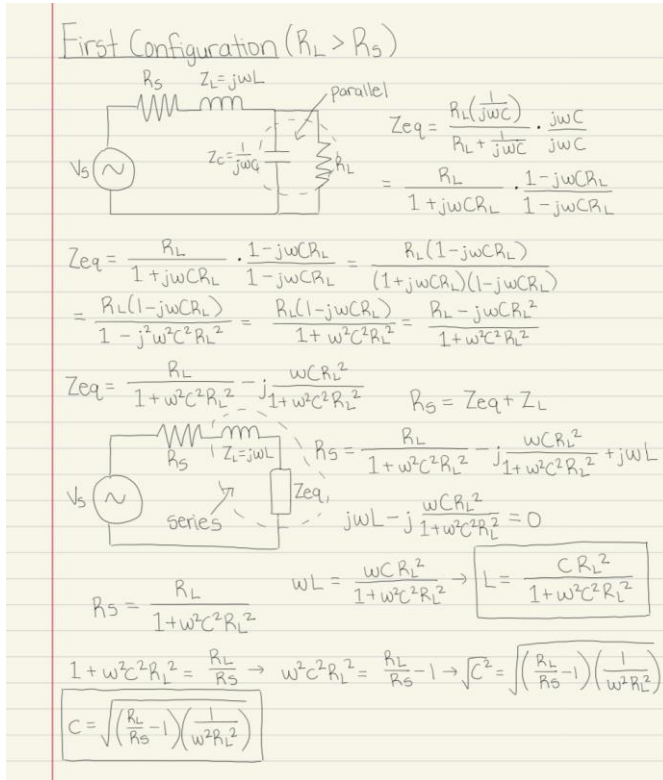 First Configuration (R_L > R_S)
R_S Z_L = jωL
parallel
Z_C = 1/(jωC)
R_L
V_S
Zeq = R_L(1/(jωC)) / (R_L + 1/(jωC)) · jωC/jωC
= R_L/(1+jωCR_L) · (1-jωCR_L)/(1-jωCR_L)
Zeq = R_L/(1+jωCR_L) · (1-jωCR_L)/(1-jωCR_L) = R_L(1-jωCR_L)/((1+jωCR_L)(1-jωCR_L))
= R_L(1-jωCR_L)/(1-j²ω²C²R_L²) = R_L(1-jωCR_L)/(1+ω²C²R_L²) = (R_L-jωCR_L²)/(1+ω²C²R_L²)
Zeq = R_L/(1+ω²C²R_L²) - j ωCR_L²/(1+ω²C²R_L²) R_S = Zeq + Z_L
R_S Z_L = jωL
V_S
series
Zeq
R_S = R_L/(1+ω²C²R_L²) - j ωCR_L²/(1+ω²C²R_L²) + jωL
jωL - j ωCR_L²/(1+ω²C²R_L²) = 0
R_S = R_L/(1+ω²C²R_L²) ωL = ωCR_L²/(1+ω²C²R_L²) → L = CR_L²/(1+ω²C²R_L²)
1+ω²C²R_L² = R_L/R_S → ω²C²R_L² = R_L/R_S - 1 → √C² = √((R_L/R_S - 1)(1/(ω²R_L²)))
C = √((R_L/R_S - 1)(1/(ω²R_L²)))